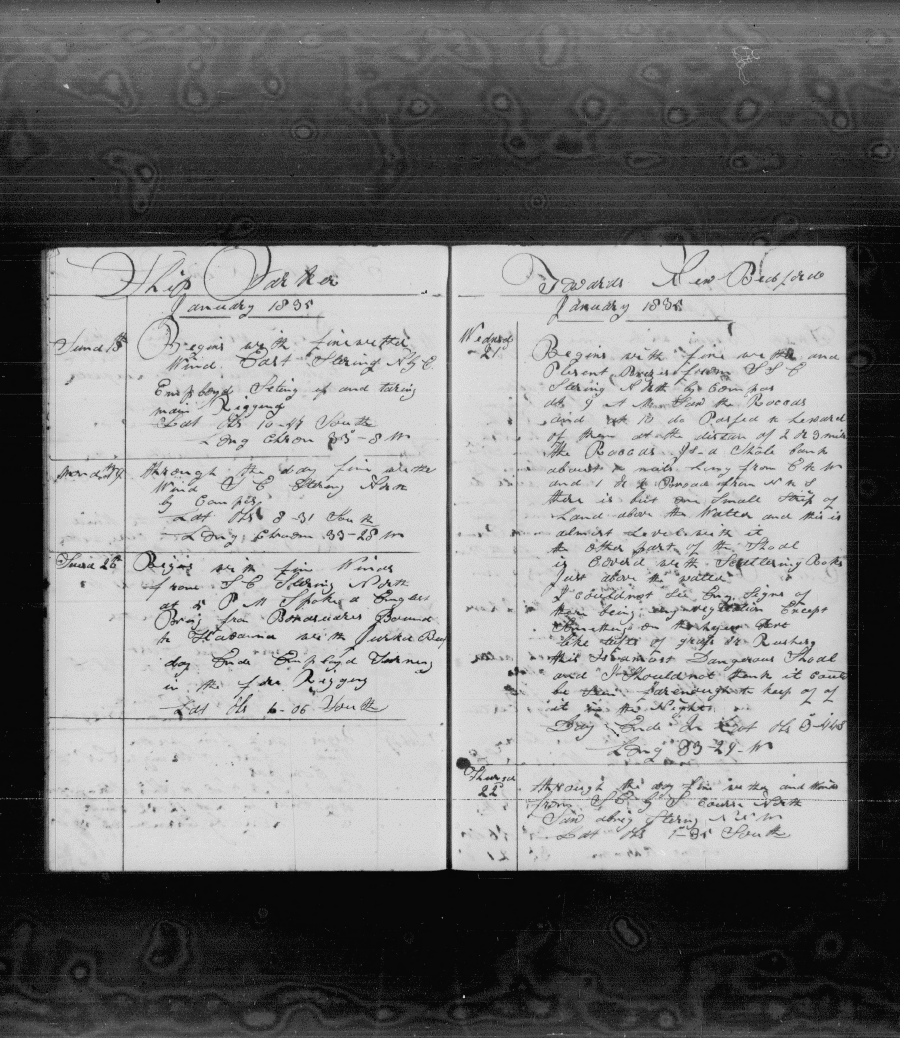 Ship Parker
January 1835
Sund 18th Begins with fine wether
Wind East Stering N by E
Employd Seting up and taring
main Rigging
Lat Obs 10-47 South
Long Chron 33-8 W
Mond 19 through the day fine wether
Wind S E Stering North
by Compas
Lat Obs 8-31 South
Long Chron 33-28 W
Tusd 20th Begins with fine Winds
from S E Stering North
at 5 P M Spoke a English
Brig from Bonasaries Bound
to Habanna with Jurked Beef
day Ends Employd
in the fore Rigging
Lat Obs 6-06 South
Towards New Bedford
January 1835
Wednsd 21 Begins with fine wether and
Plesent from S S E
Stering North by Compas
at 9 A M Saw the Roccas
and at 10 do Passed to leward
of them at the distan of 2 or 3 mile
the Roccas Is a Shole bank
about miles Long from E to W
and 1 or 2 Broad from N to S
there is but one Small Strip of
Land above the Water and this is
almost Level with it
the other part of the Shoal
is Covered with Scattering Rocks
Just above the water
I could not See Eny Signs of
there being any vegetation Except
Something on the
like tufts of grass or Rushes
this Is a most Dangerous Shoal
and I Should not think it could
be Seen far enough to keep of of
it in the Night
Day Ends In Lat Obs 3-44 S
Long 33-29 W
Thursd 22 through the day fine wether and
from S E by S course North
Saw a brig Stering
Lat Obs 1-35 South